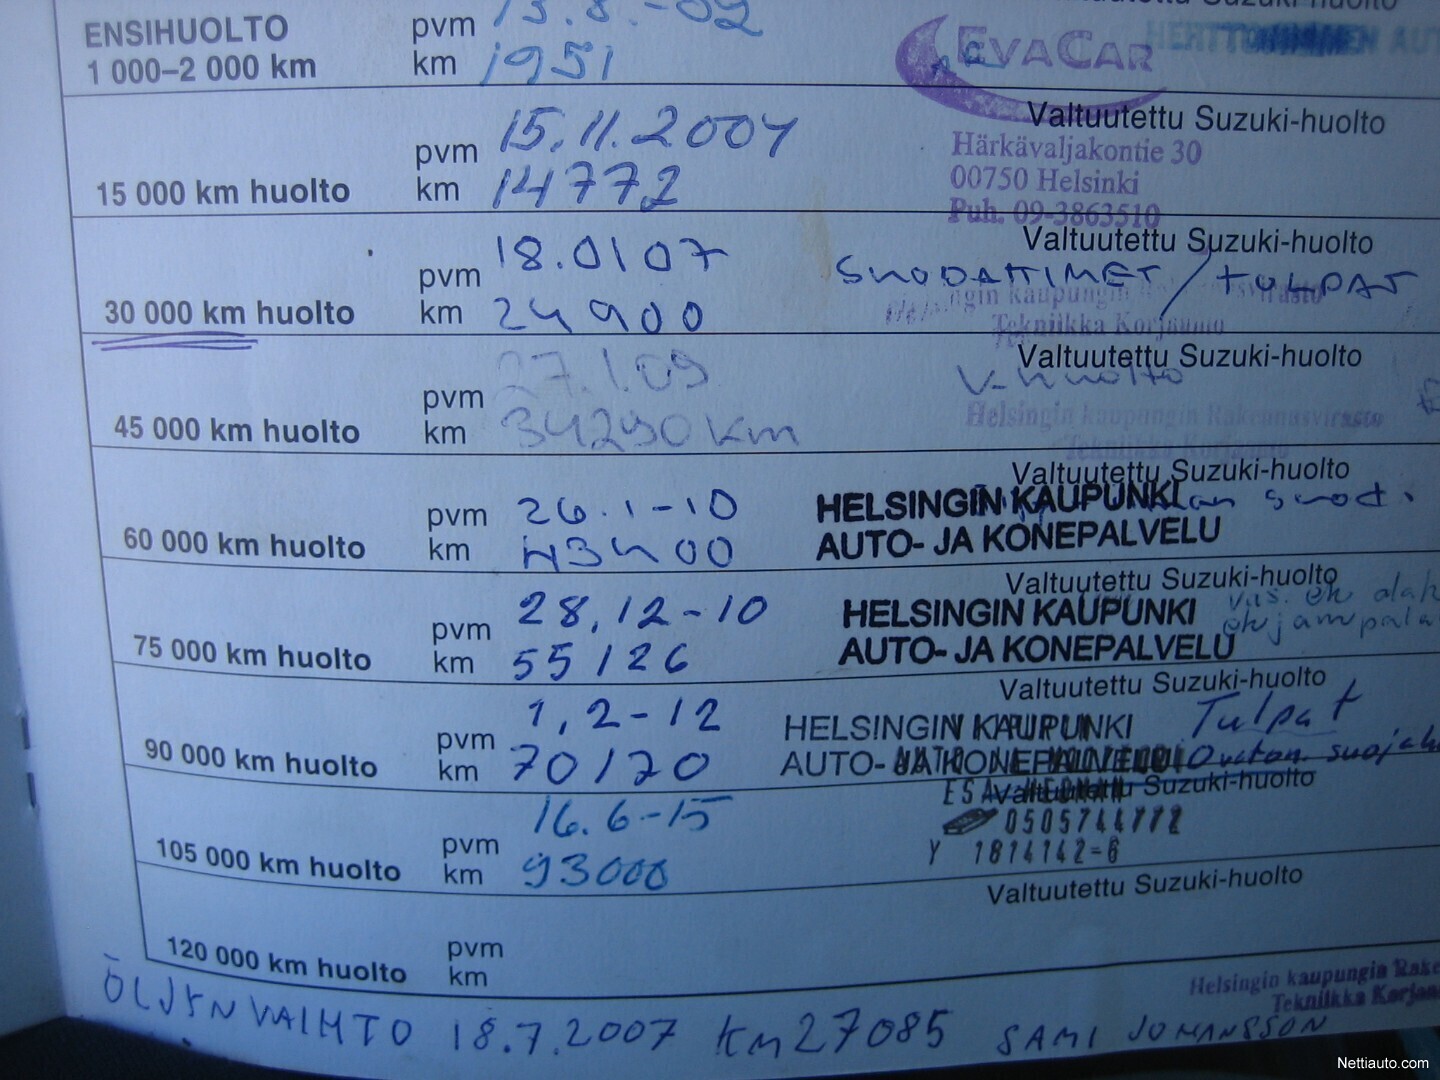 Valtuutettu Suzuki-huolto
ENSIHUOLTO
1 000–2 000 km
pvm 13.8.-02
km 1951
EVACAR
HERTTONIEMEN AUT
15 000 km huolto
pvm 15.11.2004
km 14772
Valtuutettu Suzuki-huolto
Härkävaljakontie 30
00750 Helsinki
Puh. 09-3863510
30 000 km huolto
pvm 18.0107
km 24900
Valtuutettu Suzuki-huolto
SUODATTIMET / TULPAT
Helsingin kaupungin Rakennusvirasto
Tekniikka Korjaamo
45 000 km huolto
pvm 27.1.09
km 34290 km
Valtuutettu Suzuki-huolto
V-huolto
Helsingin kaupungin Rakennusvirasto
Tekniikka Korjaamo
60 000 km huolto
pvm 26.1-10
km 43400
Valtuutettu Suzuki-huolto
HELSINGIN KAUPUNKI
AUTO- JA KONEPALVELU
suod.
75 000 km huolto
pvm 28,12-10
km 55126
Valtuutettu Suzuki-huolto
HELSINGIN KAUPUNKI
AUTO- JA KONEPALVELU
vas. ek alah
90 000 km huolto
pvm 1,2-12
km 70120
Valtuutettu Suzuki-huolto
HELSINGIN KAUPUNKI
AUTO- JA KONEPALVELU
Tulpat
105 000 km huolto
pvm 16.6-15
km 93000
Valtuutettu Suzuki-huolto
ESA
0505744772
Y 1814142-6
120 000 km huolto
pvm
km
Valtuutettu Suzuki-huolto
Helsingin kaupungin Rake
Tekniikka Korjaa
ÖLJYNVAIHTO 18.7.2007 KM 27085 SAMI JOHANSSON
Nettiauto.com